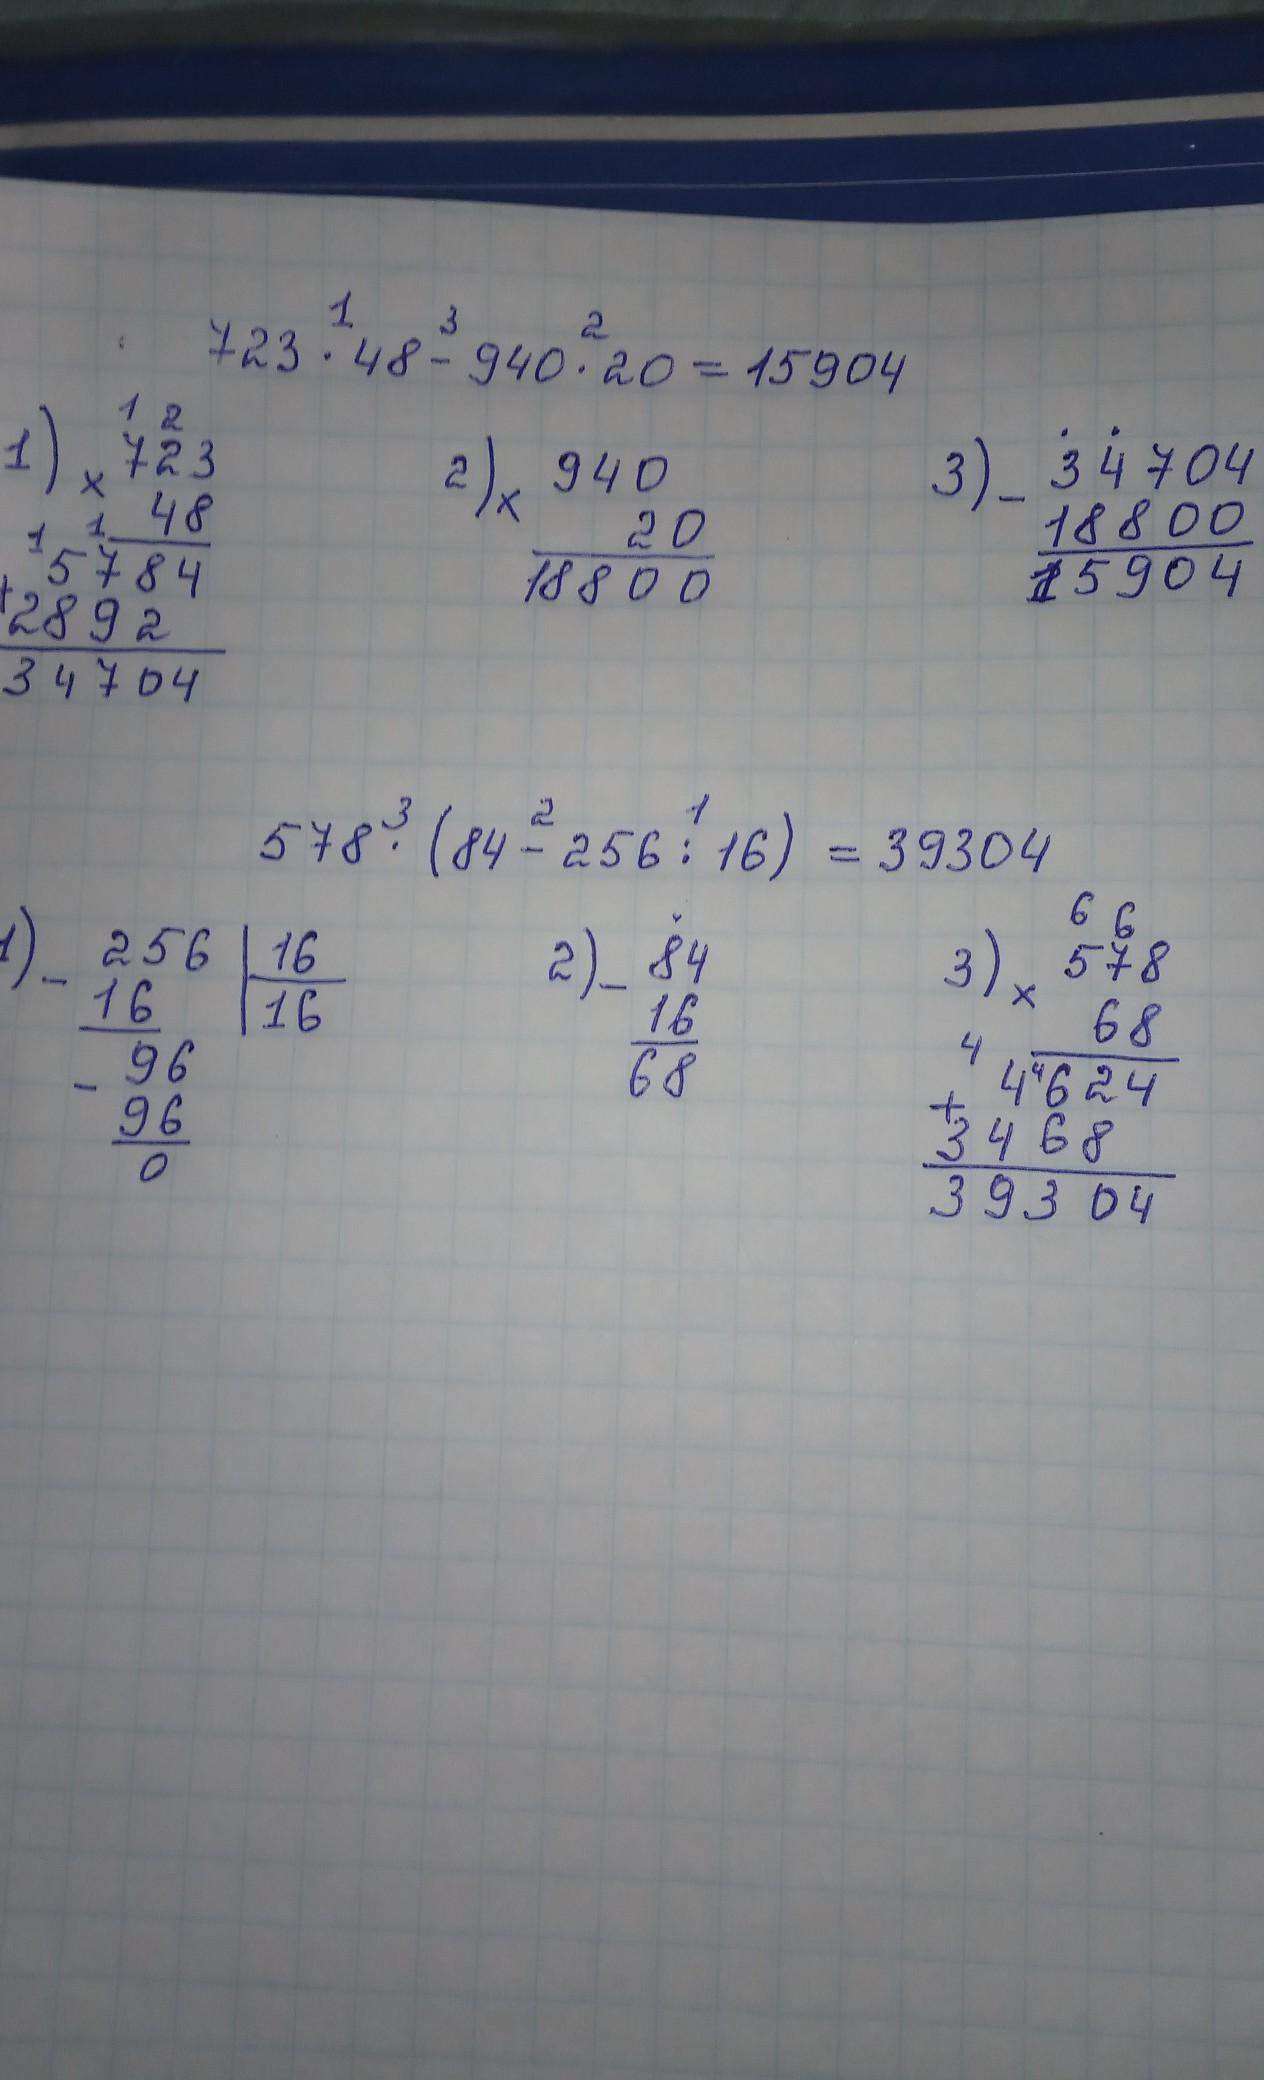 1 3 2
723 · 48 - 940 · 20 = 15904
1 2
1) × 723
48
1 1
5784
+ 2892
34704
2) × 940
20
18800
3) - 34704
18800
15904
3 2 1
578 · (84 - 256 : 16) = 39304
1) - 256 | 16
16 | 16
- 96
96
0
2) - 84
16
68
6 6
3) × 578
68
4 4
4624
+ 3468
39304